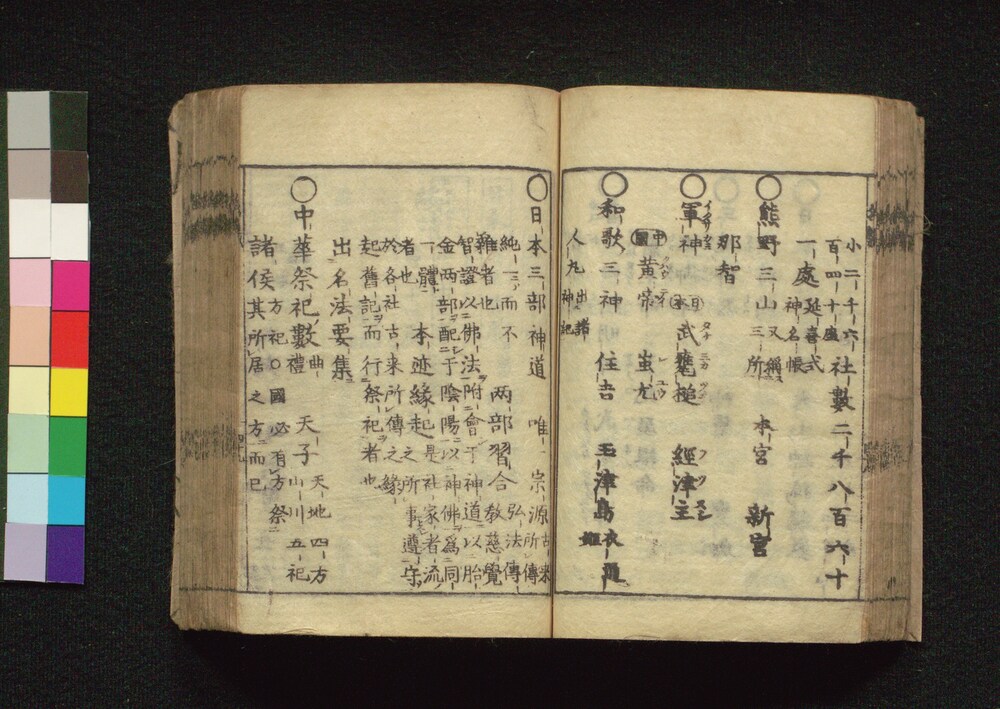 小二千六
百四十座 社數二千八百六十
一處 延喜式
神名帳
○熊野三山 又稱
三所 本宮 新宮
那智
○軍神 日本 武甕槌 經津主
イクサガミ タケミカヅチ フツヌシ
中國 黃帝 蚩尤
クハウテイ シユウ
○和歌三神 住吉 玉津島 衣通姬
人丸 出諸
神記
○日本三部神道 唯一宗源 古來
所傳
純一而不
雜者也 兩部習合 弘法傳
教慈覺
智證以佛法附會于神道以胎
金兩部配于陰陽以神佛爲同
一體
者也 本迹緣起 是社家者流
之所事遵守
於各社古來所傳之緣
起舊記而行祭祀者也
出名法要集
○中華祭祀數 曲
禮 天子 天地 四方
山川 五祀
諸侯 方祀○國必有方祭
其所居之方而已